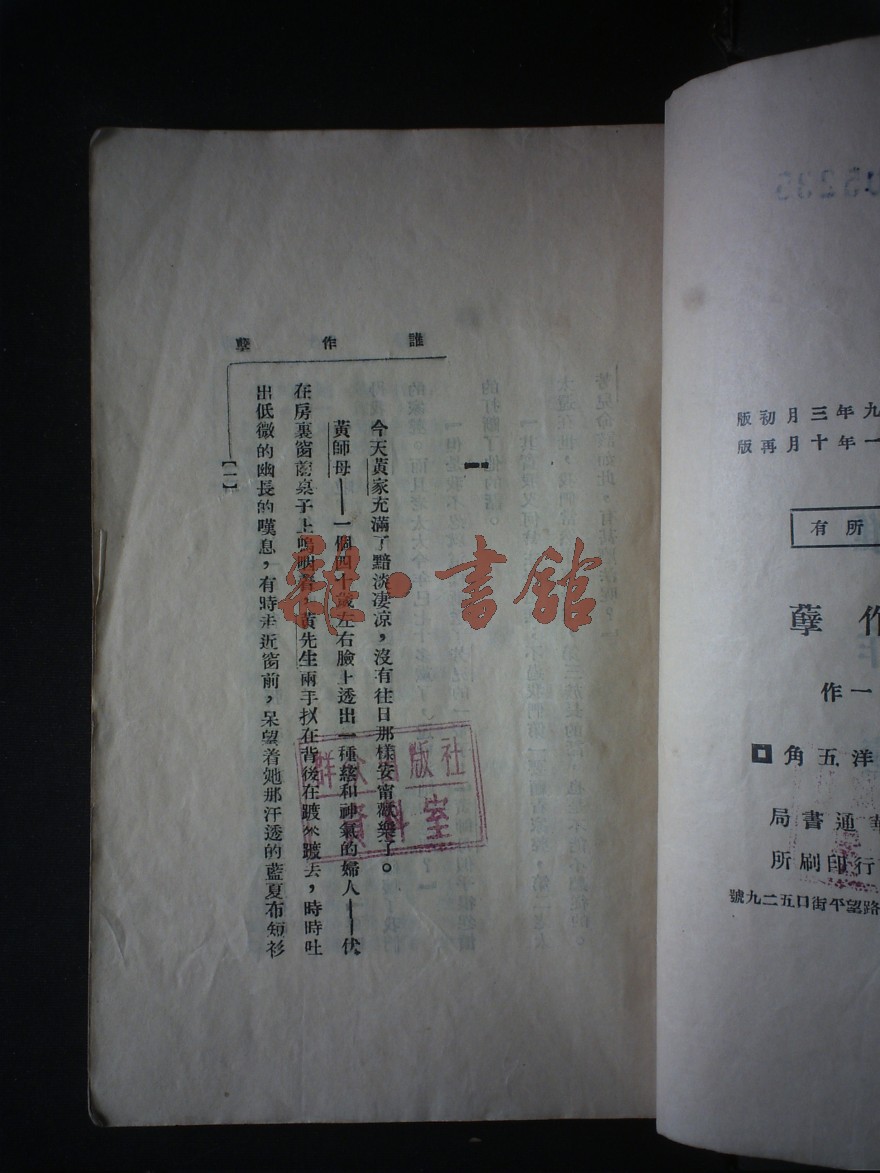 誰作孽
一
今天黃家充滿了黯淡凄凉，沒有往日那樣安甯歡樂了。
黃師母——一個四十歲左右臉上透出一種慈和神氣的婦人——伏
在房裏窗前桌子上嗚咽着，黃先生兩手扠在背後在踱來踱去，時時吐
出低微的幽長的嘆息，有時走近窗前，呆望着她那汗透的藍夏布短衫
【一】
雜·書館
群众出版社
資料室
九年三月初版
一年十月再版
所有
作孽
一作
洋五角
通書局
行印刷所
路望平街口五二九號